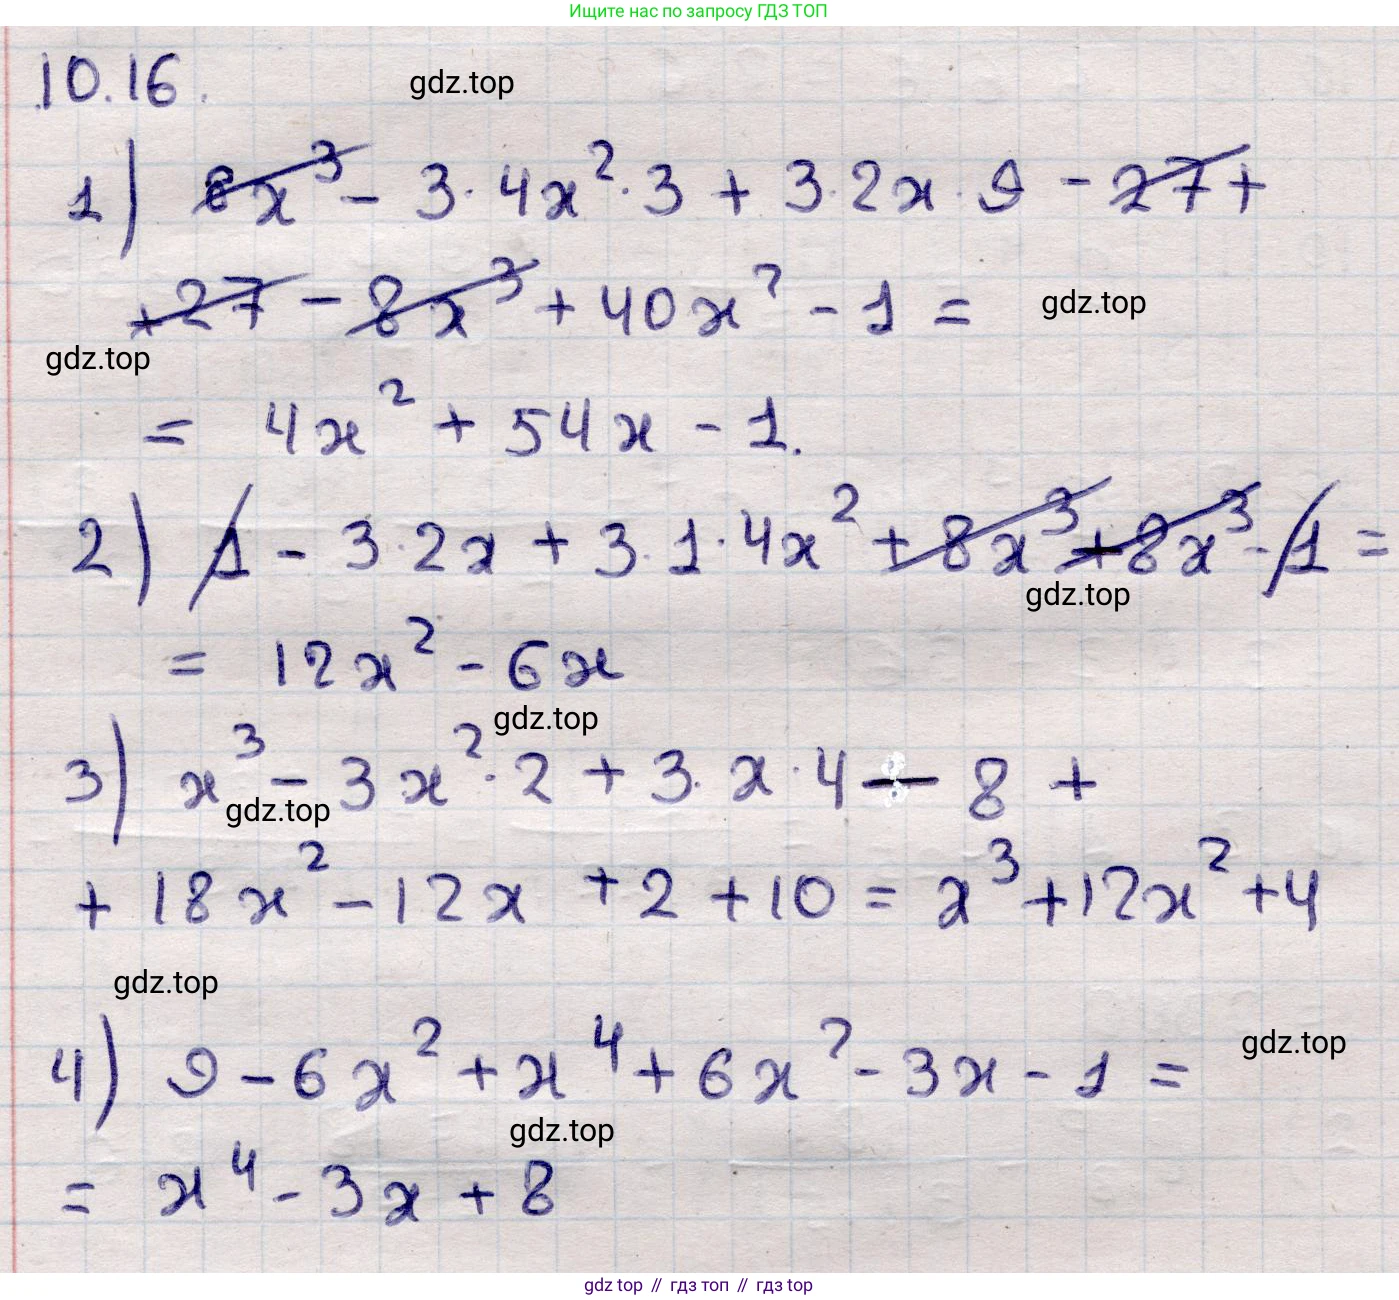 Ищите нас по запросу ГДЗ ТОП
10.16. gdz.top
1) 8x³ - 3·4x²·3 + 3·2x·9 - 27 +
+ 27 - 8x³ + 40x² - 1 = gdz.top
gdz.top
= 4x² + 54x - 1.
2) 1 - 3·2x + 3·1·4x² + 8x³ + 8x³ - 1 =
gdz.top
= 12x² - 6x
gdz.top
3) x³ - 3x²·2 + 3·x·4 - 8 +
gdz.top
+ 18x² - 12x + 2 + 10 = x³ + 12x² + 4
gdz.top
4) 9 - 6x² + x⁴ + 6x² - 3x - 1 = gdz.top
gdz.top
= x⁴ - 3x + 8
gdz top // гдз топ // гдз top